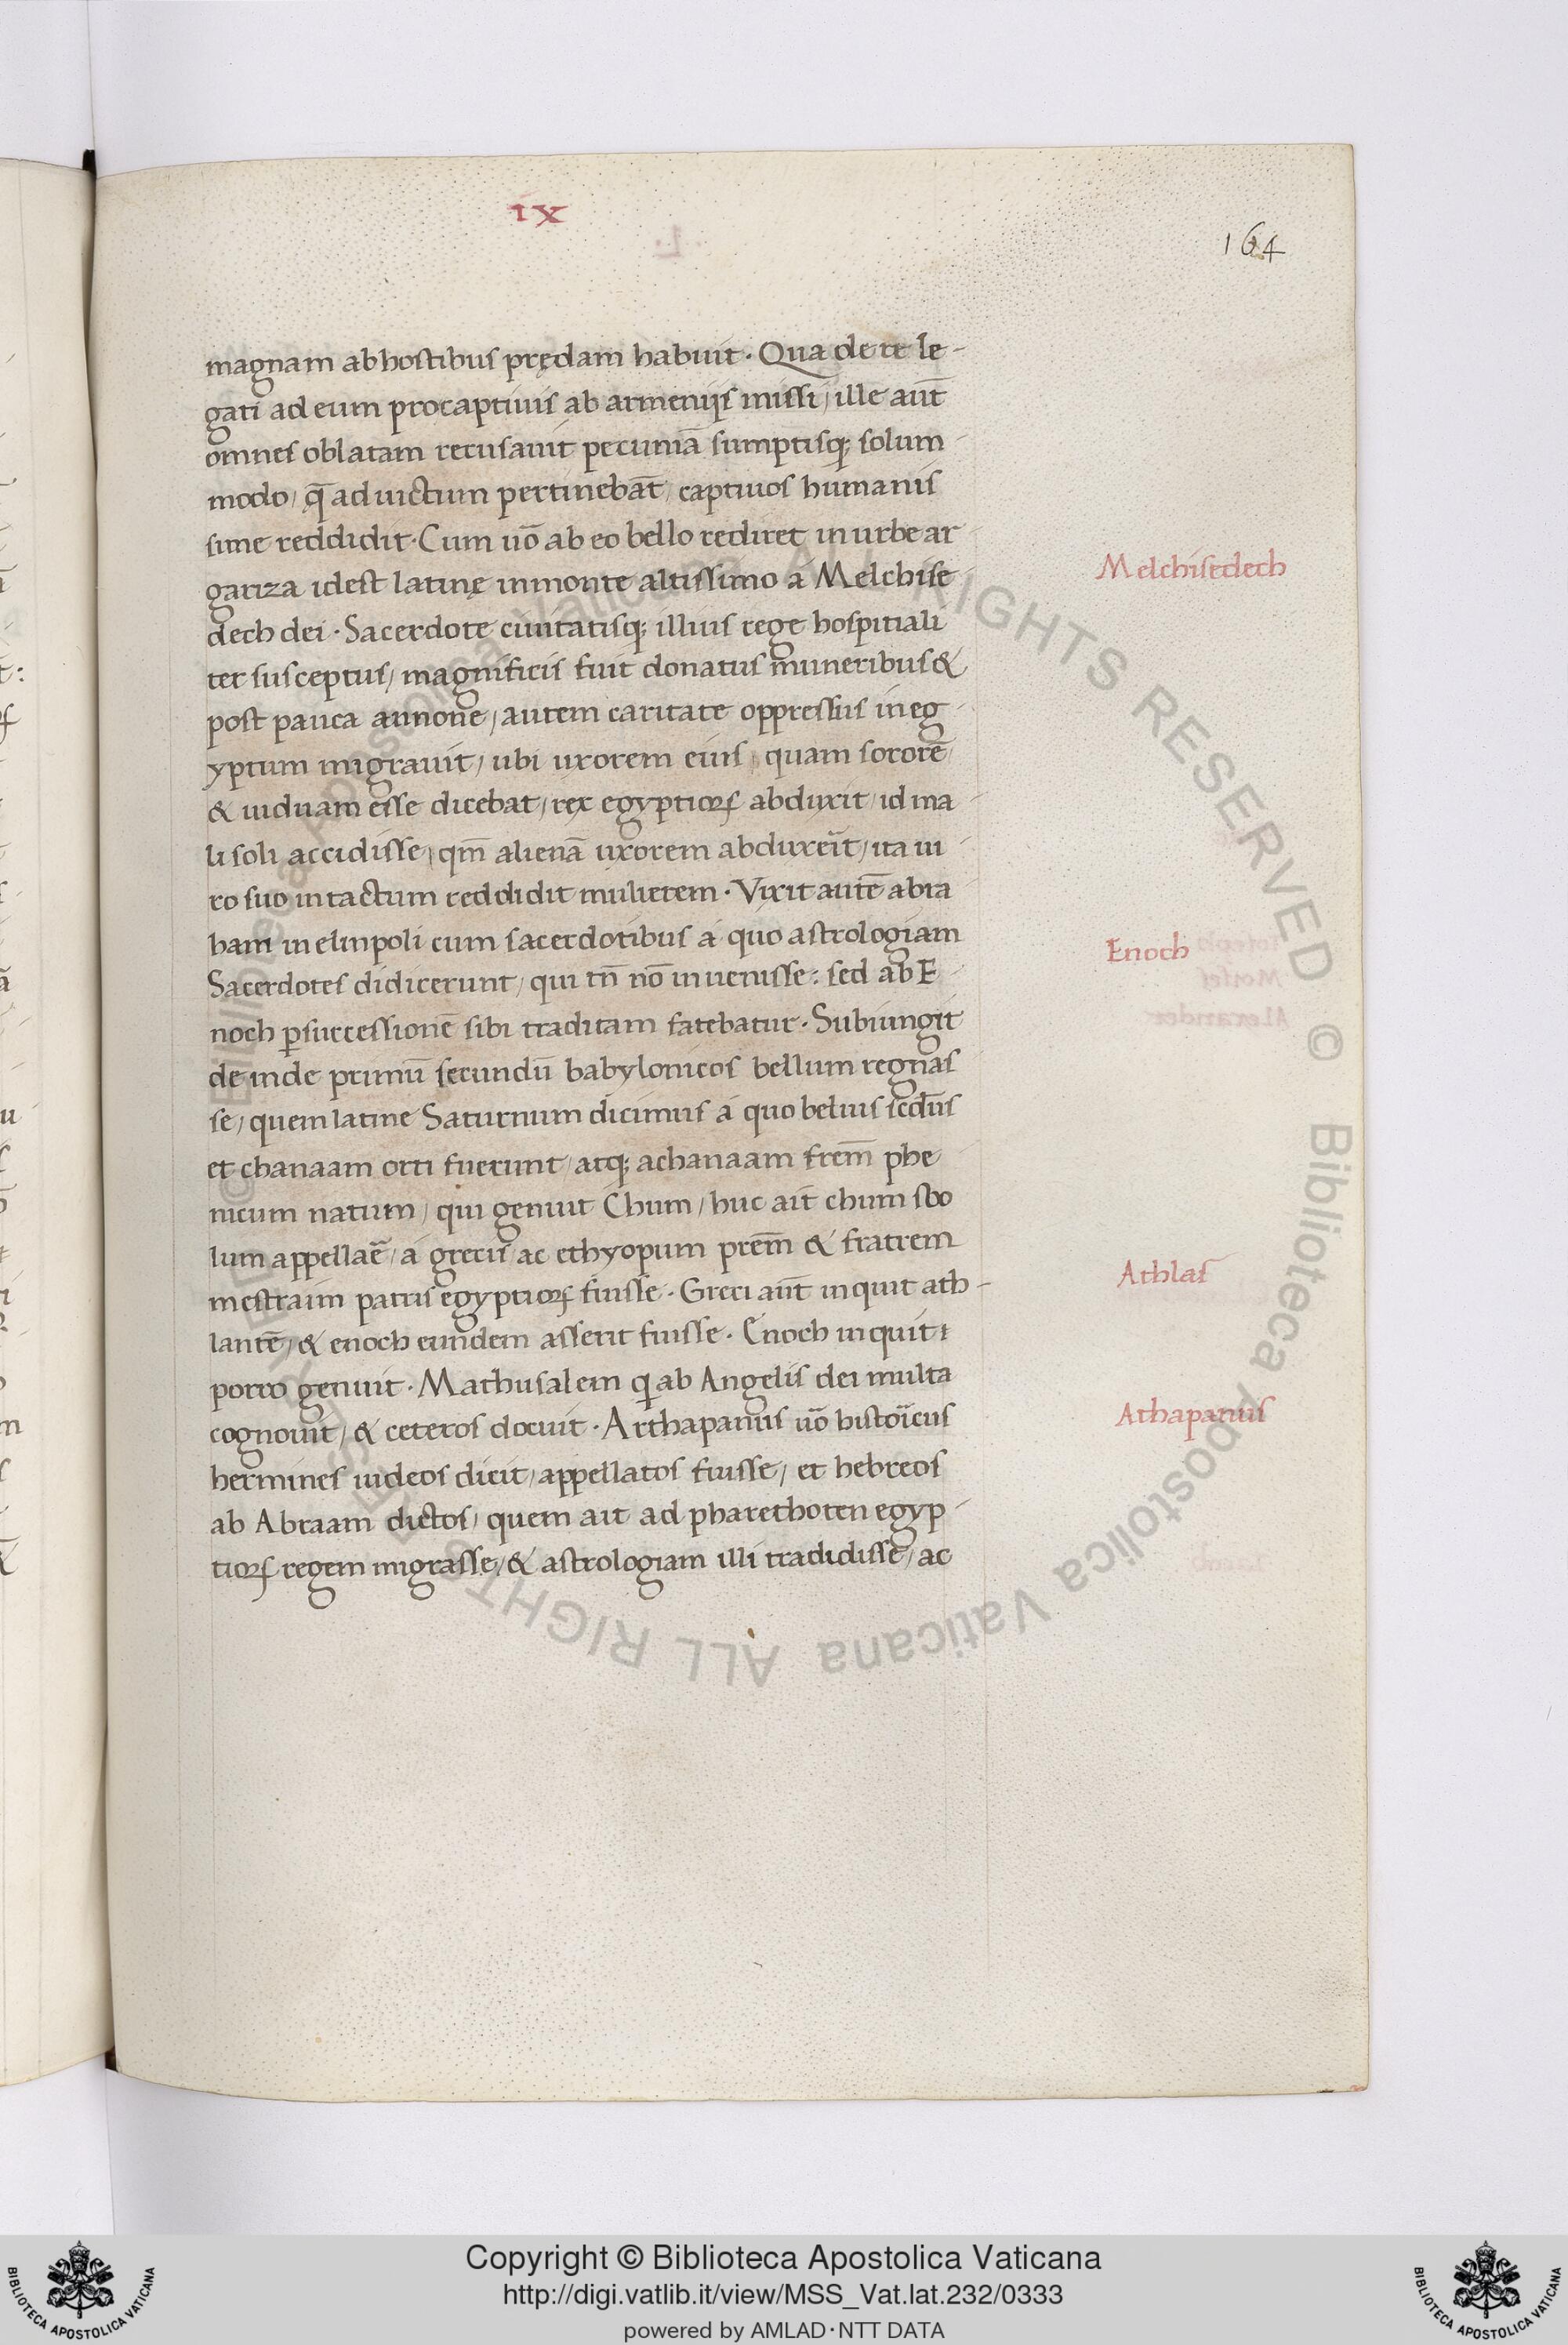 IX
164
magnam ab hostibus prędam habuit · Qua de re le-
gati ad eum pro captiuis ab armenijs missi / ille aut̄
omnes oblatam recusauit pecuniā sumptisq; solum
modo / q̄ ad uictum pertinebāt / captiuos humanis
sime reddidit · Cum uō ab eo bello rediret in urbe ar
gariza idest latinę in monte altissimo á Melchise
Melchisedech
dech dei · Sacerdote ciuitatisq; illius rege hospitiali
ter susceptus / magnificis fuit donatus muneribus &
post pauca annone / autem caritate oppressus in eg
yptum migrauit / ubi uxorem eius / quam sororē
& uiduam esse dicebat / rex egyptioꝝ abduxit / id ma
li soli accidisse / qm̄ alienā uxorem abduxer̄it / ita ui
ro suo intactum reddidit mulierem · Vixit autē abra
ham in elinpoli cum sacerdotibus á quo astrologiam
Enoch
Sacerdotes didicerunt / qui tn̄ nō inuenisse : sed ab E
noch ꝑ successionē sibi traditam fatebatur · Subiungit
deinde primū secundū babylonicos bellum regnas
se / quem latine Saturnum dicimus á quo belus scd̄us
et chanaam orti fuerunt / atq; achanaam frem̄ phe
nicum natum / qui genuit Chum / huc ait chum sbo
lum appellaē / á grecis ac ethyopum prem̄ & fratrem
Athlas
mestraim patris egyptioꝝ fuisse · Greci aut̄ inquit ath-
lantē / & enoch eundem asserit fuisse · Enoch inquit :
porro genuit · Mathusalem q ab Angelis dei multa
Athapanus
cognouit / & ceteros docuit · Arthapanus uō histōicus
hermines iudeos dicit / appellatos fuisse / et hebreos
ab Abraam dictos / quem ait ad pharethoten egyp-
tioꝝ regem migrasse / & astrologiam illi tradidisse / ac
© Biblioteca Apostolica Vaticana ALL RIGHTS RESERVED © Biblioteca Apostolica Vaticana ALL RIGHTS RESERVED
Copyright © Biblioteca Apostolica Vaticana
http://digi.vatlib.it/view/MSS_Vat.lat.232/0333
powered by AMLAD · NTT DATA
BIBLIOTECA APOSTOLICA VATICANA
BIBLIOTECA APOSTOLICA VATICANA